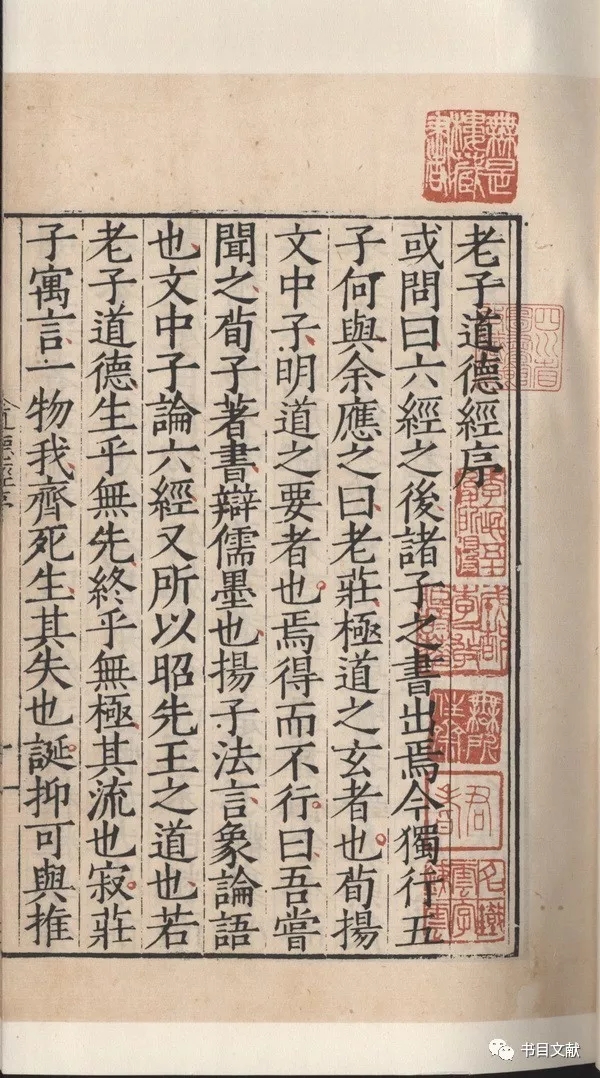 老子道德經序
或問曰六經之後諸子之書出焉今獨行五
子何與余應之曰老莊極道之玄者也荀揚
文中子明道之要者也焉得而不行曰吾嘗
聞之荀子著書辯儒墨也揚子法言象論語
也文中子論六經又所以昭先王之道也若
老子道德生乎無先終乎無極其流也寂莊
子寓言一物我齊死生其失也誕抑可與推
书目文献